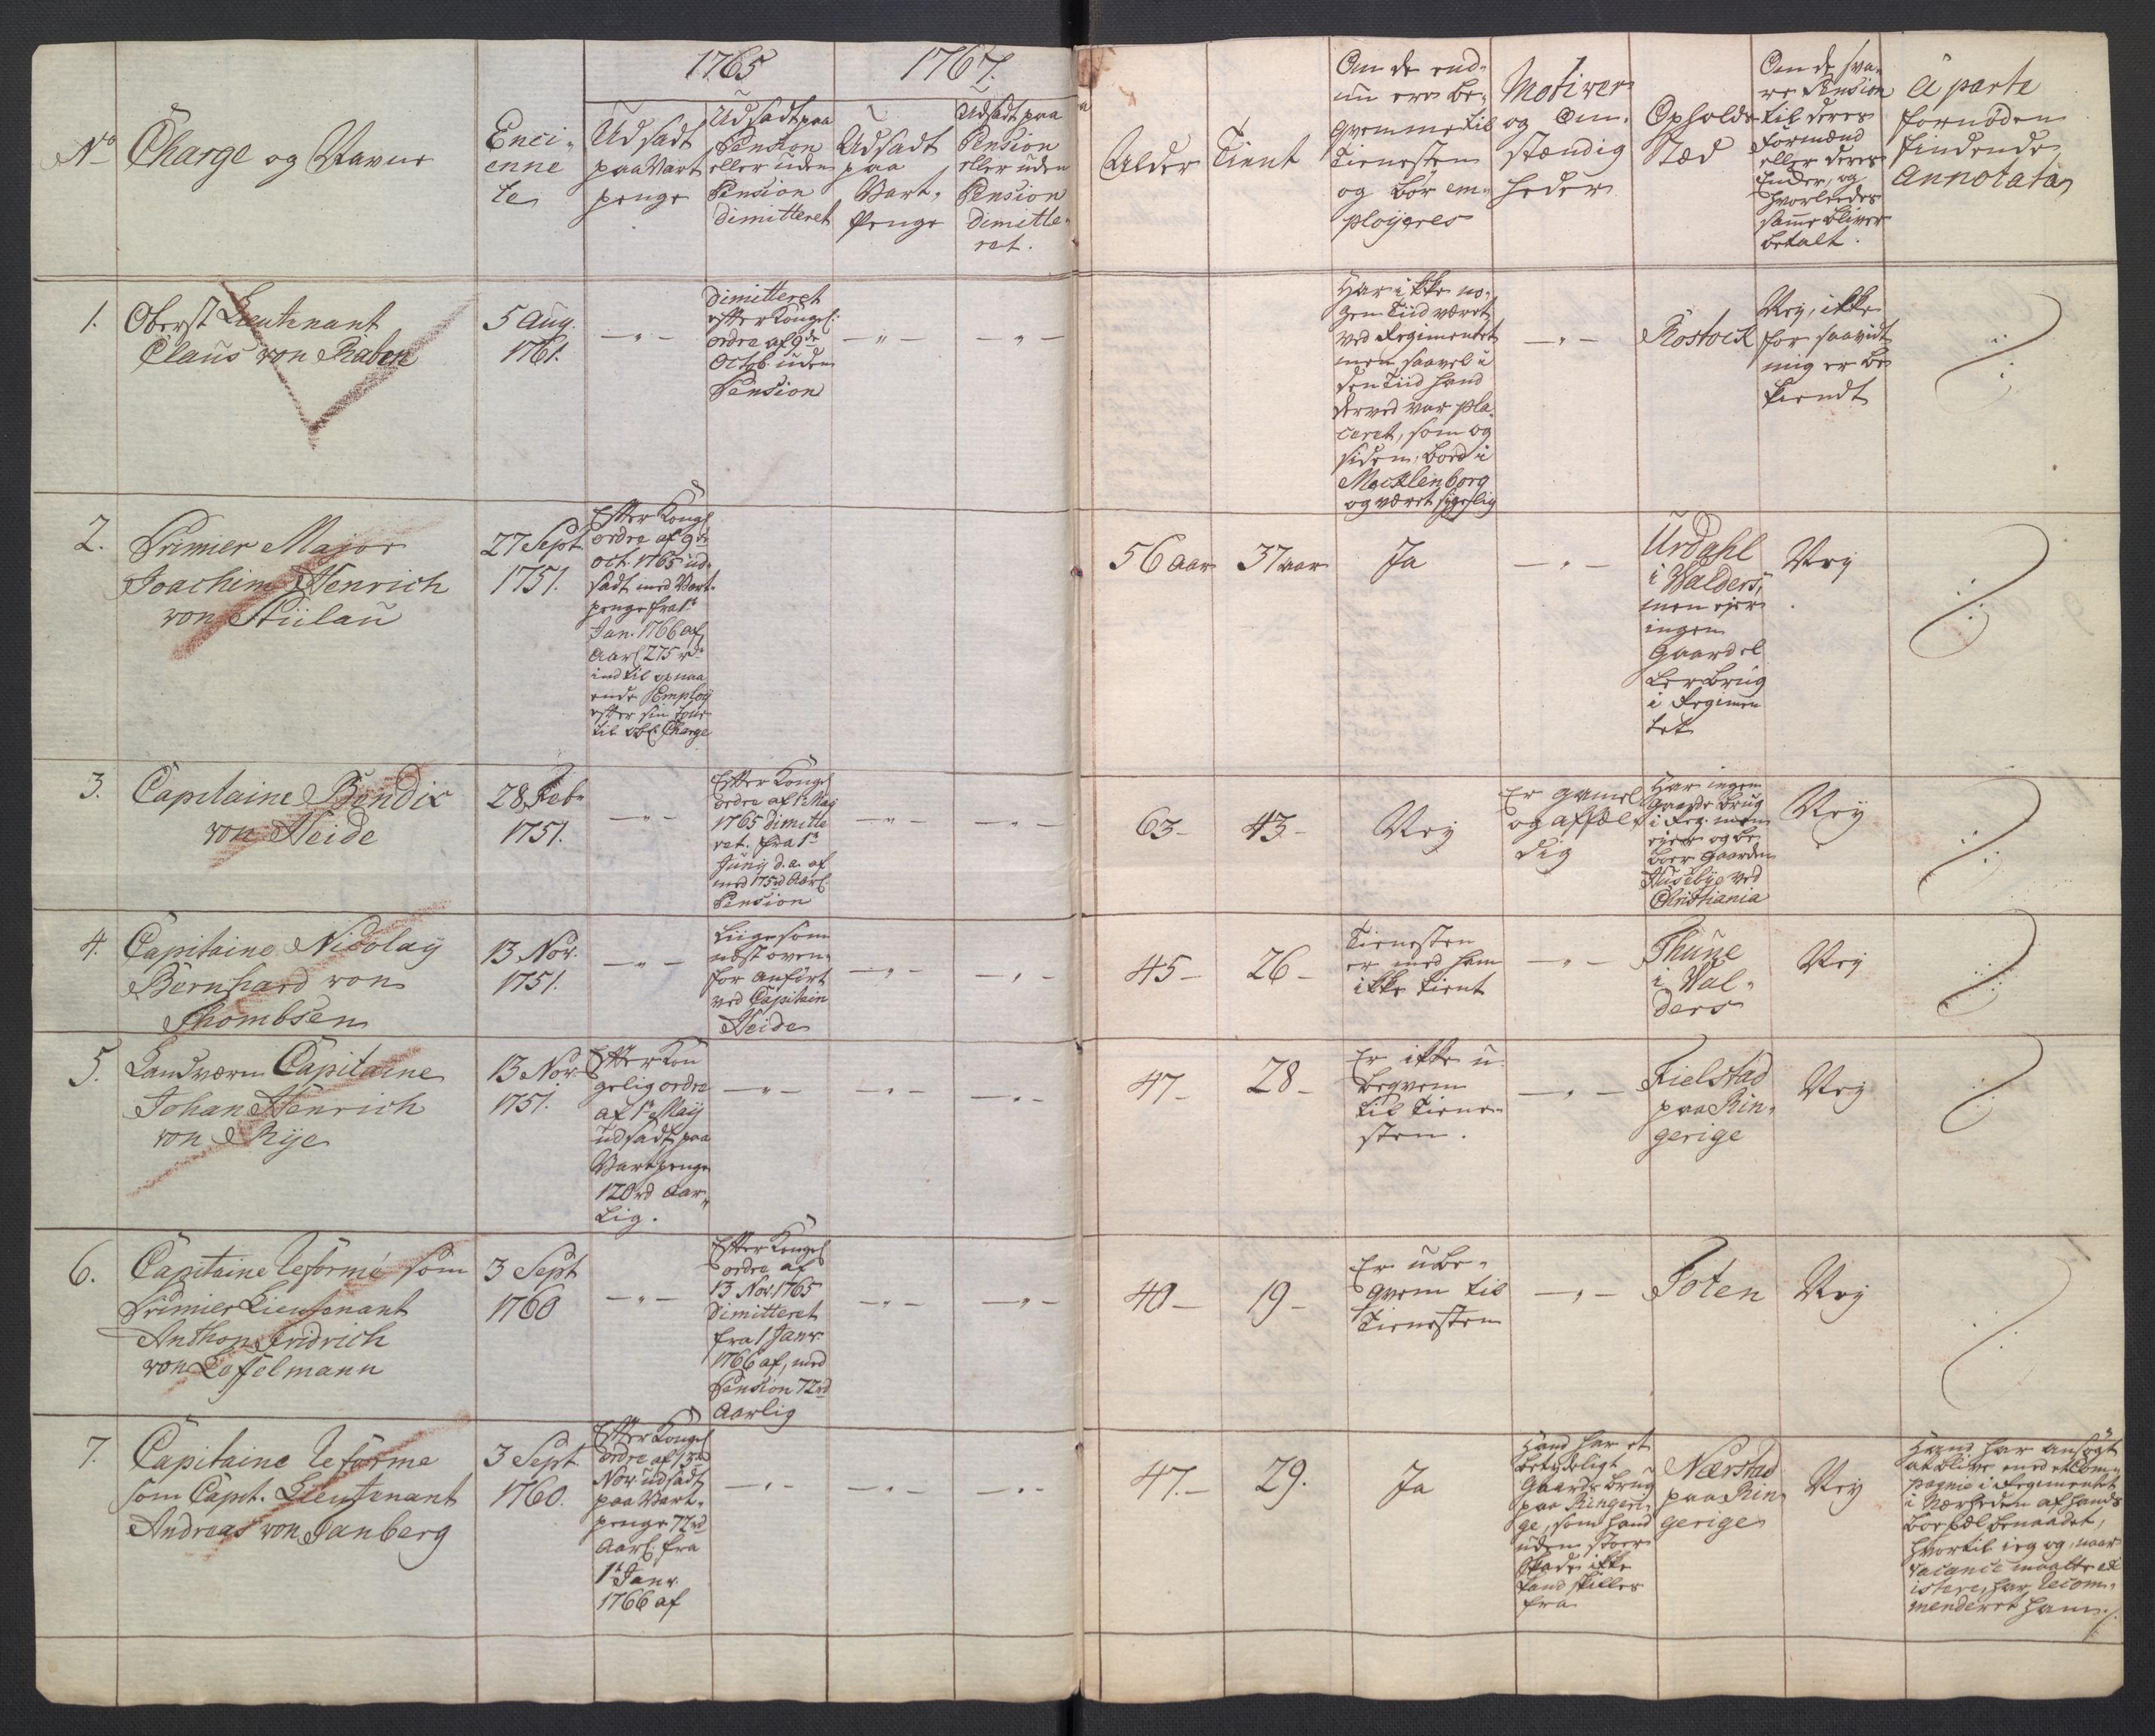 1765
1767.
No
Charge og Navne
Enci-
enne
te
Udsadt
paa Vart
penge
Udsadt paa
Pension
eller uden
Pension
Dimitteret
Udsadt
paa
Vart-
Penge
Udsadt paa
Pension
eller uden
Pension
Dimitte-
ret.
Alder
Tient
Om de end-
nu ere be-
qvemme til
Tienesten
og bør em-
ployeres
Motiver
og Om-
stændig
heder
Opholds
Stæd
Om de sva-
re Pension
til deres
Formænd
eller deres
Enker, og
hvorledes
samme bliver
betalt.
à parte
fornøden
findende
Annotata
1.
Oberst Lieutenant
Claus von Raben
5 Aug.
1761.
— " —
Dimitteret
efter Kongel:
ordre af 9de
Octob. uden
Pension
— " —
— " —
Har ikke no-
gen Tiid været
ved Regimentet
men saavel i
den Tiid hand
derved var pla-
ceret, som og
siden, boed i
Mecklenborg
og været sygelig
— " —
Rostock
Ney, ikke
for saavidt
mig er be
kiendt
2.
Primier Major
Joachim Henrich
von Stülau
27 Sept
1751.
Efter Kongl
ordre af 9de
Oct. 1765 ud-
sadt med Vart-
penge fra 1t
Jan. 1766 af
Aarl 275 rd
indtil opnaa
ende Employ
efter sin Tour
til Obl. Charge
56 Aar
37 aar
Ja
— " —
Urdahl
i Walders,
men ejer
ingen
Gaard el
ler brug
i Regimen
tet
Ney
3.
Capitaine Bendix
von Heide
28 Feb
1751.
— " —
Efter Kongel
ordre af 1 May
1765 dimitte
ret. fra 1t
Juny d.a. af
med 175 rd Aarl.
Pension
— " —
— " —
63 —
43 —
Ney
Er gamel
og affæl-
dig
Har ingen
Gaarde brug
i Reg. men
ejer og be
boer Gaarden
Husebye ved
Christiania
Ney
4.
Capitaine Nicolay
Bernhard von
Thombsen
13 Nov.
1751.
— " —
Ligesom
næst oven-
for anført
ved Capitain
Heide
— " —
— " —
45 —
26 —
Tienesten
er med ham
ikke tient
— " —
Thune
i Wal-
ders
Ney
5.
Landværn Capitaine
Johan Henrich
von Rye
13 Nov.
1751.
Efter Kon
gelig ordre
af 1t May
udsadt paa
Vartpenge
120 rd Aar-
lig.
— " —
— " —
— " —
47 —
28 —
Er ikke u-
beqvem
til Tiene-
sten.
— " —
Fielstad
paa Rin-
gerige
Ney
6.
Capitaine reformé som
Primier Lieutenant
Anthon Fridrich
von Coffelmann
3 Sept
1760
— " —
Efter Kongel
ordre af
13 Nov. 1765
Dimitteret
fra 1 Janv.
1766 af, med
Pension 72 rd
Aarlig
— " —
— " —
40 —
19 —
Er ube-
qvem til
Tienesten
— " —
Toten
Ney
7.
Capitaine reforme
som Capit. Lieutenant
Andreas von Tanberg
3 Sept
1760.
Efter Kongel
ordre af 13de
Nov. udsadt
paa Vart-
penge 72 rd
Aarl: fra
1t Janv.
1766 af
— " —
— " —
— " —
47. —
29.
Ja
Hand har et
betydeligt
Gaards brug
paa Ringeri-
ge, som hand
uden stoer
Skade ikke
kand skilles
fra
Nærstad
paa Rin-
gerige
Ney
Hand har ansøgt
at blive med et Com-
pagnie i Regimentet
i Nærheden af hands
boepæl benaadet,
hvortil ieg og, naar
vacance maatte ex
istere, har recom-
menderet ham.